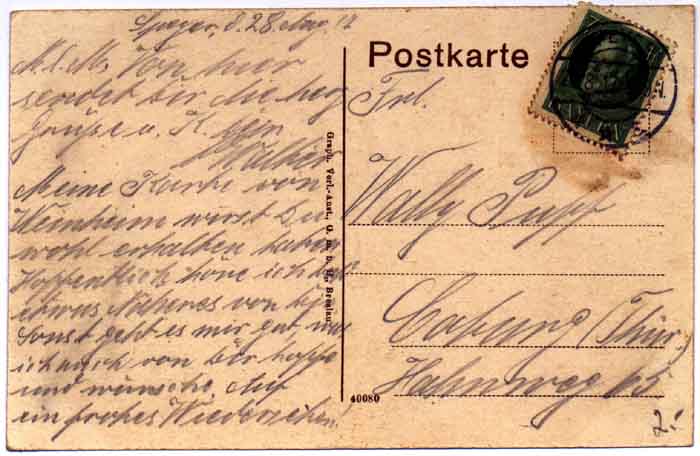 Speyer, d. 28. Aug. 1
M. l. M. Von hier
sendet dir die herz
Grüße u. K. dein
Walther
Meine Karte von
Weinheim wirst Du
wohl erhalten haben
Hoffentlich höre ich bald
etwas Näheres von dir
Sonst geht es mir gut, was
ich auch von dir hoffe
und wünsche. Auf
ein frohes Wiedersehen.
Graph. Verl.-Anst., G. m. b. H., Breslau
40080
Postkarte
BAYERN
Frl.
Wally Puff
Coburg (Thür.
Hahnweg 65